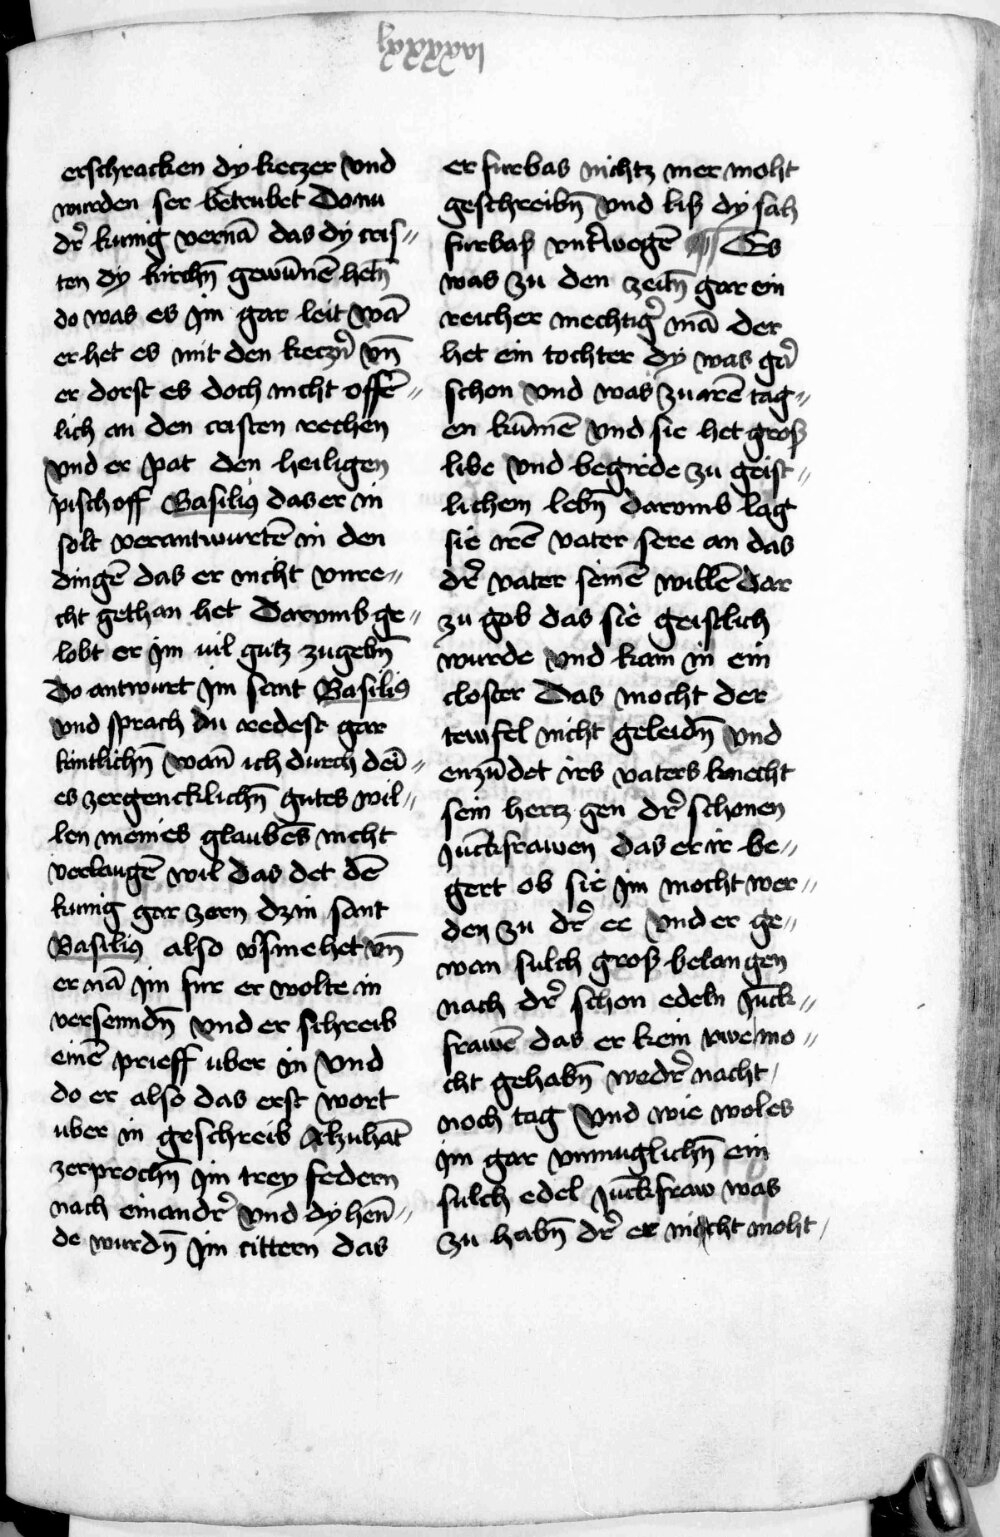 lxxxxvi
erschracken dÿ keczer vnd
wurden ser betrubet Do nu
dr̃ kunig vernā das dÿ cris〃
ten dy kirchn̄ gewūnē hetn̄
do was es jm gar leit wā
er het es mit den keczr̃n vn̄
er dorst es doch nicht offē〃
lich an den cristen rechen
vnd er pat den heiligen
pischoff Basiliꝰ das er in
solt verantwurtē in den
dingē das er nicht vnre〃
cht gethan het Darvmb ge〃
lobt er jm vil gutz zugebn̄
Do antwurt jm sant Basiliꝰ
vnd sprach du redest gar
kintlichn̄ wan̄ ich durch dei〃
es zergencklichn̄ gutes wil〃
len meines glaubēs nicht
verlaugē wil das det dē
kunig gar zorn dz in sant
Basiliꝰ also v̓smehet vn̄
er nā jm fur er wolte in
versenndn̄ vnd er schreib
einē prieff uber in vnd
do er also das erst wort
uber in geschreib Alzuhāt
zerprochn̄ jm trey federn
nach einandr̃ vnd dÿ hen̄〃
de wurdn̄ jm cittern das
er furbas nichtz mer moht
geschreibn̄ vnd liß dÿ sah
furbaß vnt̓wegē Es
was zu den zeitn̄ gar ein
reicher mechtig̓ mā der
het ein tochter dÿ was gar̃
schon vnd was zu irē tag〃
en kūmē vnd sie het groß
libe vnd begirde zu geist〃
lichem lebn̄ darvmb lag
sie irē vater sere an das
dr̃ vater seinē willē dar
zu gab das sie geistlich
wurde vnd kam in ein
closter Das mocht der
teufel nicht geleidn̄ vnd
enzūdet irs vaters knecht
sein hertz gen dr̃ schonen
juckfrawen das er ir be〃
gert ob sie jm mocht wer〃
den zu dr̃ ee vnd er ge〃
wan sulch groß belangen
nach dr̃ schon edeln juck〃
frawē das er kein rwe mo〃
cht gehabn̄ wedr̃ nacht
noch tag vnd wie wol es
jm gar vnmuglichn̄ ein
sulch edel juckfraw was
zu habn̄ dr̃ er nicht moht